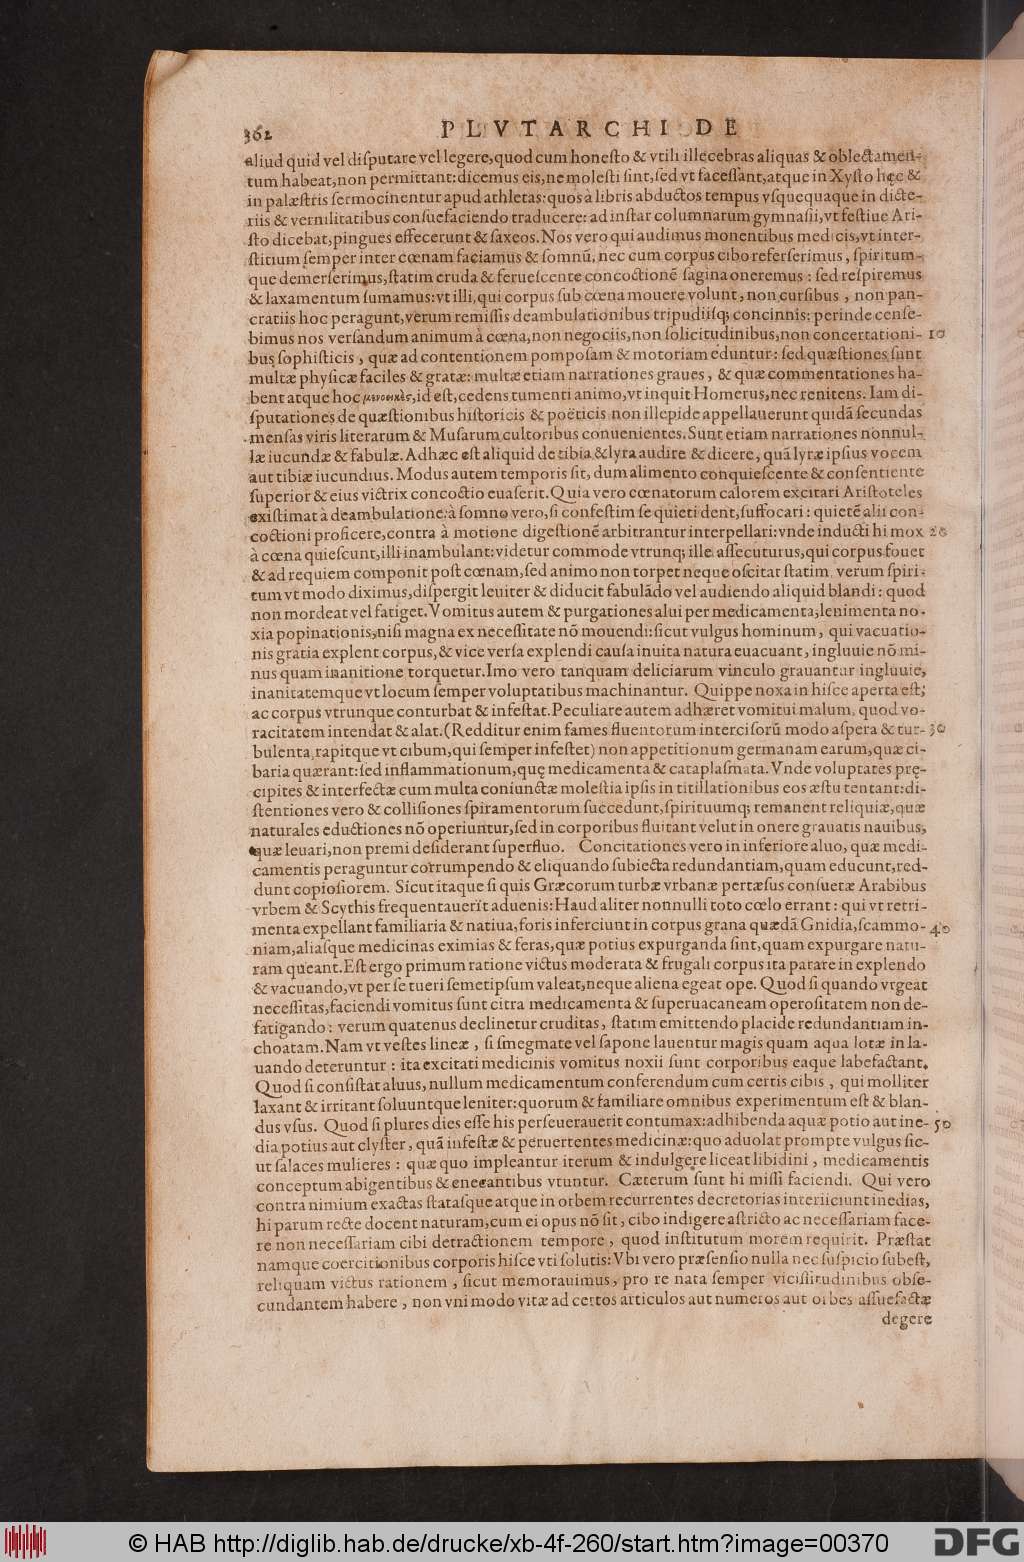 362
PLVTARCHI DE
aliud quid vel diſputare vel legere, quod cum honeſto & vtili illecebras aliquas & oblectamen-
tum habeat, non permittant: dicemus eis, ne moleſti ſint, ſed vt faceſſant, atque in Xyſto hęc &
in palæſtris ſermocinentur apud athletas: quos à libris abductos tempus vſquequaque in dicte-
riis & vernilitatibus conſuefaciendo traducere: ad inſtar columnarum gymnaſii, vt feſtiue Ari-
ſto dicebat, pingues effecerunt & ſaxeos. Nos vero qui audimus monentibus medicis, vt inter-
ſtitium ſemper inter cœnam faciamus & ſomnū, nec cum corpus cibo referſerimus, ſpiritum-
que demerſerimus, ſtatim cruda & ferueſcente concoctionē ſagina oneremus: ſed reſpiremus
& laxamentum ſumamus: vt illi, qui corpus ſub cœna mouere volunt, non curſibus, non pan-
cratiis hoc peragunt, verum remiſſis deambulationibus tripudiiſq; concinnis: perinde cenſe-
bimus nos verſandum animum à cœna, non negociis, non ſolicitudinibus, non concertationi- 10
bus ſophiſticis, quæ ad contentionem pompoſam & motoriam eduntur: ſed quæſtiones ſunt
multæ phyſicæ faciles & gratæ: multæ etiam narrationes graues, & quæ commentationes ha-
bent atque hoc, id eſt, cedens tumenti animo, vt inquit Homerus, nec renitens. Iam di-
ſputationes de quæſtionibus hiſtoricis & poëticis non illepide appellauerunt quidā ſecundas
menſas viris literarum & Muſarum cultoribus conuenientes. Sunt etiam narrationes nonnul-
læ iucundæ & fabulæ. Adhæc eſt aliquid de tibia & lyra audire & dicere, quā lyræ ipſius vocem
aut tibiæ iucundius. Modus autem temporis ſit, dum alimento conquieſcente & conſentiente
ſuperior & eius victrix concoctio euaſerit. Quia vero cœnatorum calorem excitari Ariſtoteles
exiſtimat à deambulatione: à ſomno vero, ſi confeſtim ſe quieti dent, ſuffocari: quietē alii con-
coctioni proficere, contra à motione digeſtionē arbitrantur interpellari: vnde inducti hi mox 20
à cœna quieſcunt, illi inambulant: videtur commode vtrunq; ille aſſecuturus, qui corpus fouet
& ad requiem componit poſt cœnam, ſed animo non torpet neque oſcitat ſtatim verum ſpiri-
tum vt modo diximus, diſpergit leuiter & diducit fabulādo vel audiendo aliquid blandi: quod
non mordeat vel fatiget. Vomitus autem & purgationes alui per medicamenta, lenimenta no-
xia popinationis, niſi magna ex neceſſitate nō mouendi: ſicut vulgus hominum, qui vacuatio-
nis gratia explent corpus, & vice verſa explendi cauſa inuita natura euacuant, ingluuie nō mi-
nus quam inanitione torquetur. Imo vero tanquam deliciarum vinculo grauantur ingluuie,
inanitatemque vt locum ſemper voluptatibus machinantur. Quippe noxa in hiſce aperta eſt;
ac corpus vtrunque conturbat & infeſtat. Peculiare autem adhæret vomitui malum, quod vo-
racitatem intendat & alat. (Redditur enim fames fluentorum interciſorū modo aſpera & tur- 30
bulenta rapitque vt cibum, qui ſemper infeſtet) non appetitionum germanam earum, quæ ci-
baria quærant: ſed inflammationum, quę medicamenta & cataplaſmata. Vnde voluptates prę-
cipites & interfectæ cum multa coniunctæ moleſtia ipſis in titillationibus eos æſtu tentant: di-
ſtentiones vero & colliſiones ſpiramentorum ſuccedunt, ſpirituumq; remanent reliquiæ, quæ
naturales eductiones nō operiuntur, ſed in corporibus fluitant velut in onere grauatis nauibus,
quæ leuari, non premi deſiderant ſuperfluo. Concitationes vero in inferiore aluo, quæ medi-
camentis peraguntur corrumpendo & eliquando ſubiecta redundantiam, quam educunt, red-
dunt copioſiorem. Sicut itaque ſi quis Græcorum turbæ vrbanæ pertæſus conſuetæ Arabibus
vrbem & Scythis frequentauerit aduenis: Haud aliter nonnulli toto cœlo errant: qui vt retri-
menta expellant familiaria & natiua, foris inferciunt in corpus grana quædā Gnidia, ſcammo- 40
niam, aliaſque medicinas eximias & feras, quæ potius expurganda ſint, quam expurgare natu-
ram queant. Eſt ergo primum ratione victus moderata & frugali corpus ita parare in explendo
& vacuando, vt per ſe tueri ſemetipſum valeat, neque aliena egeat ope. Quod ſi quando vrgeat
neceſſitas, faciendi vomitus ſunt citra medicamenta & ſuperuacaneam operoſitatem non de-
fatigando: verum quatenus declinetur cruditas, ſtatim emittendo placide redundantiam in-
choatam. Nam vt veſtes lineæ, ſi ſmegmate vel ſapone lauentur magis quam aqua lotæ in la-
uando deteruntur: ita excitati medicinis vomitus noxii ſunt corporibus eaque labefactant.
Quod ſi conſiſtat aluus, nullum medicamentum conferendum cum certis cibis, qui molliter
laxant & irritant ſoluuntque leniter: quorum & familiare omnibus experimentum eſt & blan-
dus vſus. Quod ſi plures dies eſſe his perſeuerauerit contumax: adhibenda aquæ potio aut ine- 50
dia potius aut clyſter, quā infeſtæ & peruertentes medicinæ: quo aduolat prompte vulgus ſic-
ut ſalaces mulieres: quæ quo impleantur iterum & indulgere liceat libidini, medicamentis
conceptum abigentibus & enecantibus vtuntur. Cæterum ſunt hi miſſi faciendi. Qui vero
contra nimium exactas ſtataſque atque in orbem recurrentes decretorias interiiciunt inedias,
hi parum recte docent naturam, cum ei opus nō ſit, cibo indigere aſtricto ac neceſſariam face-
re non neceſſariam cibi detractionem tempore, quod inſtitutum morem requirit. Præſtat
namque coercitionibus corporis hiſce vti ſolutis: Vbi vero præſenſio nulla nec ſuſpicio ſubeſt,
reliquam victus rationem, ſicut memorauimus, pro re nata ſemper viciſſitudinibus obſe-
cundantem habere, non vni modo vitæ ad certos articulos aut numeros aut orbes aſſuefactæ
degere
© HAB http://diglib.hab.de/drucke/xb-4f-260/start.htm?image=00370
DFG